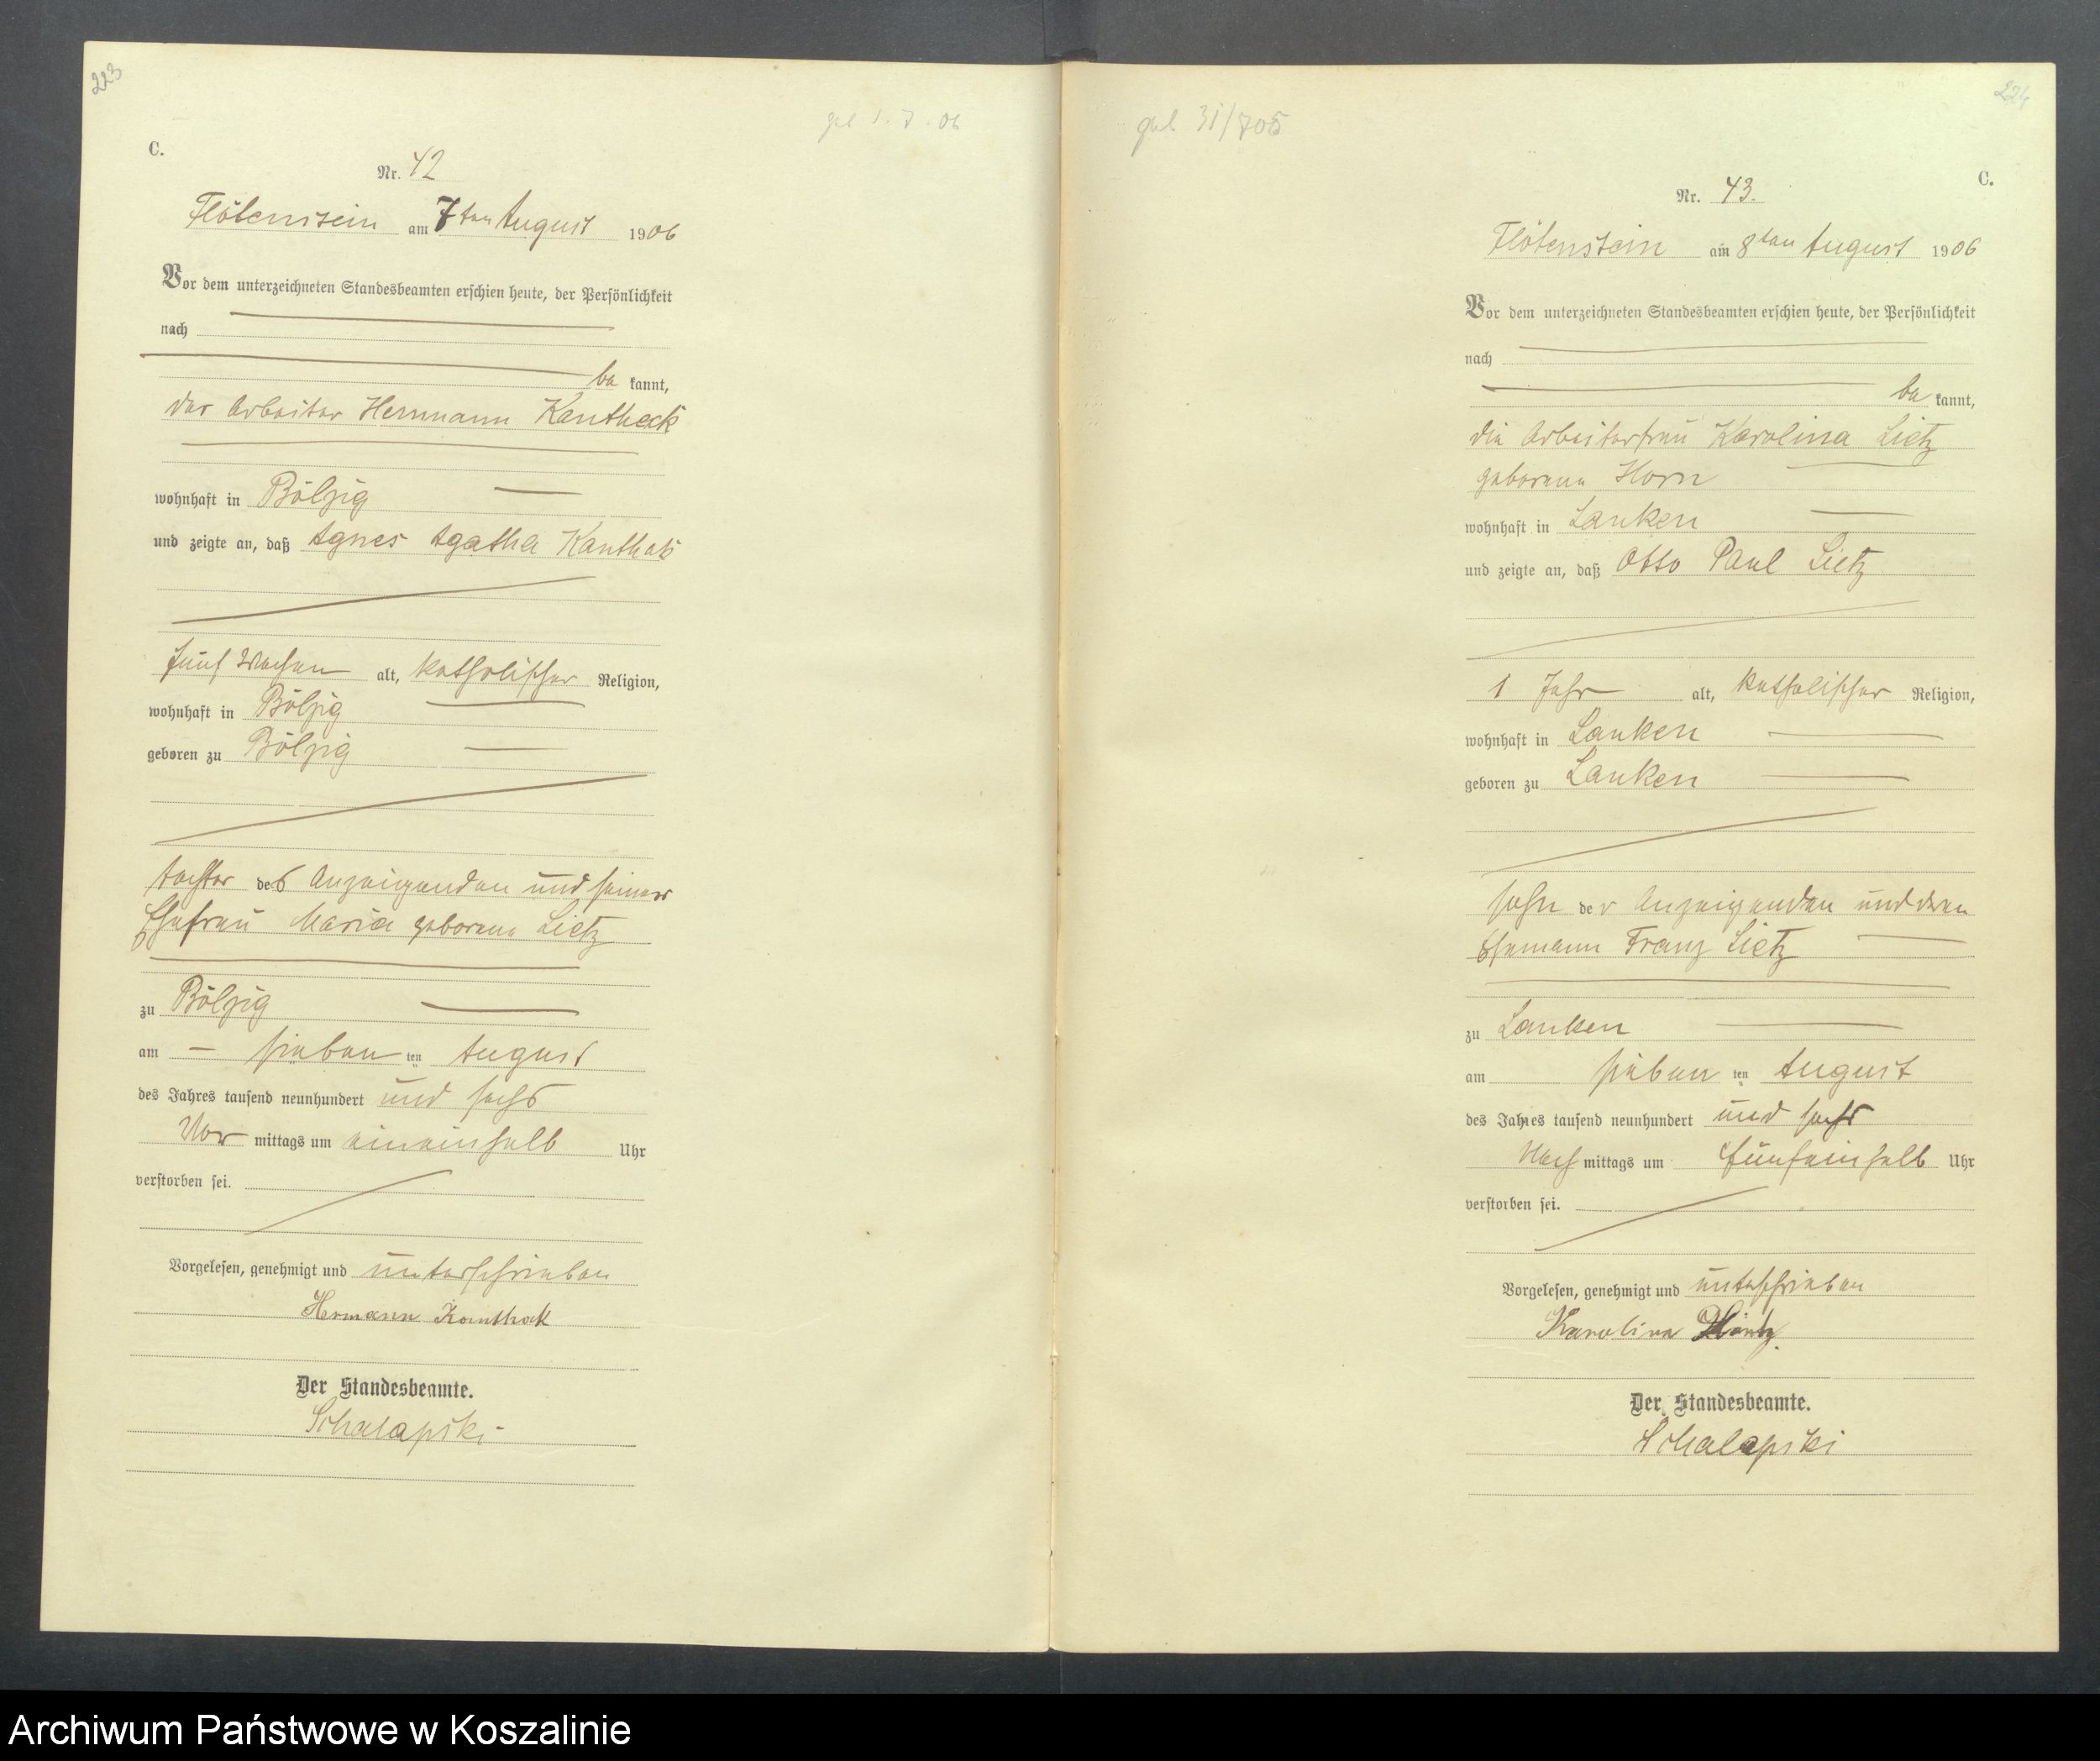 223
C.
geb 1.7.06
Nr. 42
Flötenstein am 7ten August 1906
Vor dem unterzeichneten Standesbeamten erschien heute, der Persönlichkeit
nach
be kannt,
der Arbeiter Hermann Kanthack
wohnhaft in Bölzig
und zeigte an, daß Agnes Agatha Kanthak
fünf Wochen alt, katholischer Religion,
wohnhaft in Bölzig
geboren zu Bölzig
tochter des Anzeigenden und seiner
Ehefrau Maria geborene Lietz
zu Bölzig
am sieben ten August
des Jahres tausend neunhundert und sechs
Vor mittags um eineinhalb Uhr
verstorben sei.
Vorgelesen, genehmigt und unterschrieben
Hermann Kanthak
Der Standesbeamte.
Schalapski
224
geb 31/705
C.
Nr. 43.
Flötenstein am 8ten August 1906
Vor dem unterzeichneten Standesbeamten erschien heute, der Persönlichkeit
nach
be kannt,
die Arbeiterfrau Karolina Lietz
geborene Horn
wohnhaft in Lanken
und zeigte an, daß Otto Paul Lietz
1 Jahr alt, katholischer Religion,
wohnhaft in Lanken
geboren zu Lanken
sohn der Anzeigenden und deren
Ehemann Franz Lietz
zu Lanken
am sieben ten August
des Jahres tausend neunhundert und sechs
Nach mittags um fünfeinhalb Uhr
verstorben sei.
Vorgelesen, genehmigt und unterschrieben
Karolina
Der Standesbeamte.
Schalapski
Archiwum Państwowe w Koszalinie